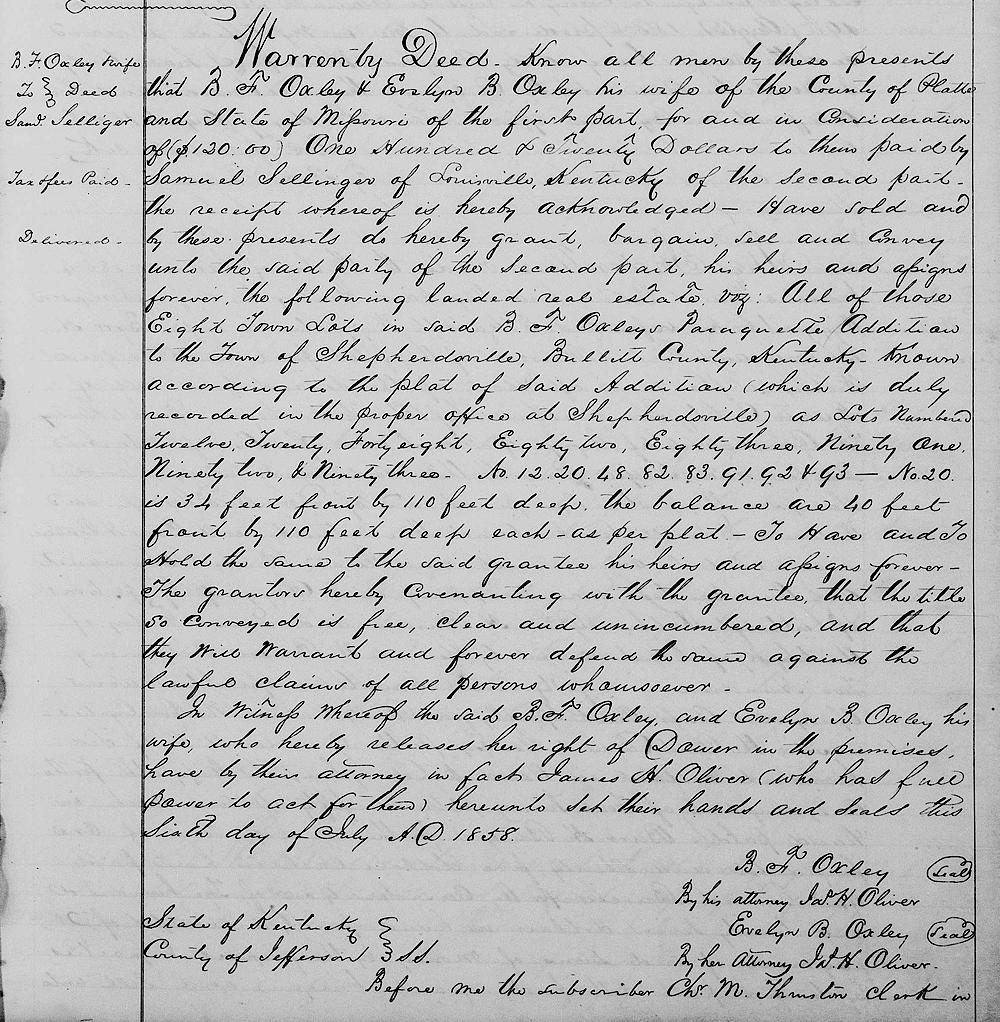 B. F. Oxley & wife
To } Deed
Saml. Selliger
Tax & fees Paid -
Delivered -
Warrenty Deed - Know all men by these presents
that B. F. Oxley & Evelyn B. Oxley his wife of the County of Platte
and State of Missouri of the first part for and in Consideration
of ($120.00) One Hundred & Twenty Dollars to them paid by
Samuel Sellinger of Louisville, Kentucky of the Second part -
the receipt whereof is hereby acknowledged - Have sold and
by these presents do hereby grant, bargain, sell and Convey
unto the said party of the Second part, his heirs and assigns
forever, the following landed real estate, viz: All of those
Eight Town Lots in said B. F. Oxleys Paraquette Addition
to the Town of Shepherdsville, Bullitt County, Kentucky - Known
according to the plat of said Addition (which is duly
recorded in the proper office at Shepherdsville) as Lots Numbered
Twelve, Twenty, Forty eight, Eighty two, Eighty three, Ninety One,
Ninety two, & Ninety three - No. 12. 20. 48. 82. 83. 91. 92 & 93 - No. 20.
is 34 feet front by 110 feet deep, the balance are 40 feet
front by 110 feet deep each - as per plat. - To Have and To
Hold the same to the said grantee his heirs and assigns forever -
The grantors hereby Covenanting with the grantee, that the title
so Conveyed is free, clear and unincumbered, and that
they Will Warrant and forever defend the same against the
lawful claims of all persons whomsoever -
In Witness Whereof the said B. F. Oxley, and Evelyn B. Oxley his
wife, who hereby releases her right of Dower in the premises,
have by their attorney in fact James H. Oliver (who has full
power to act for them) hereunto set their hands and seals this
Sixth day of July A.D. 1858.
B. F. Oxley (Seal)
By his attorney Jas. H. Oliver
Evelyn B. Oxley (Seal)
By her Attorney Js. H. Oliver -
State of Kentucky }
County of Jefferson } SS.
Before me the subscriber Chs. M. Thruston Clerk in